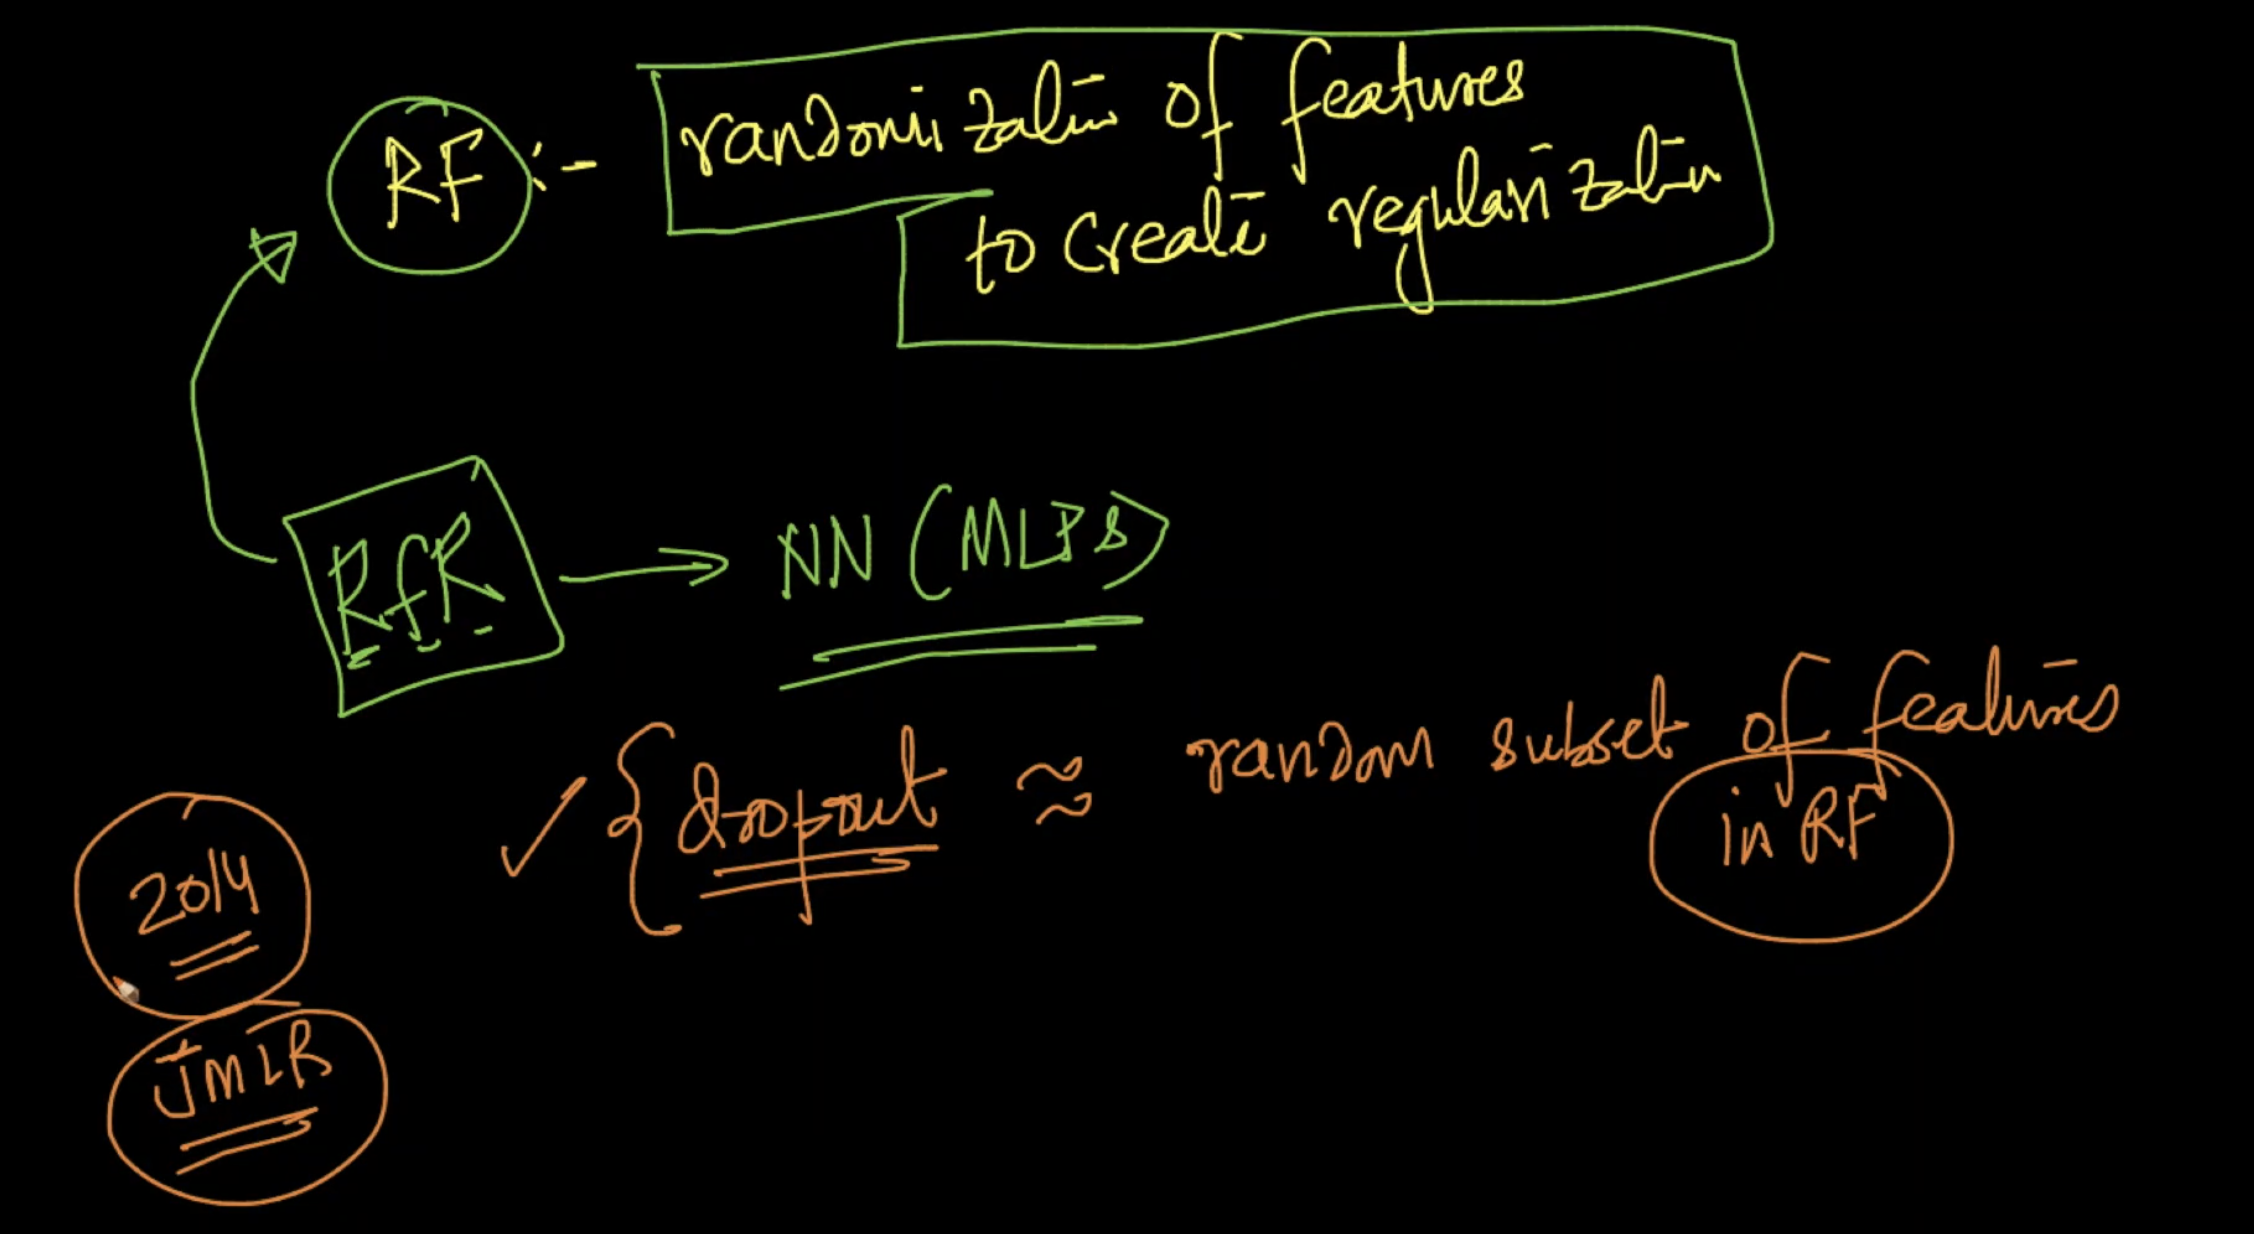 RF :- randomization of features
to create regularization
RfR → NN (MLPs)
✓ { dropout ≈ random subset of features
in RF
2014
JMLR